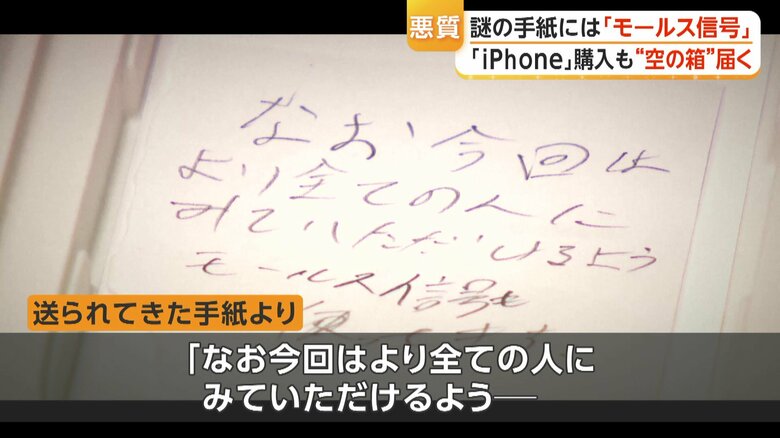 悪質
謎の手紙には「モールス信号」
「iPhone」購入も“空の箱”届く
なお今回は
より全ての人に
みていただけるよう
モールス信号も
送られてきた手紙より
「なお今回はより全ての人に
みていただけるよう──